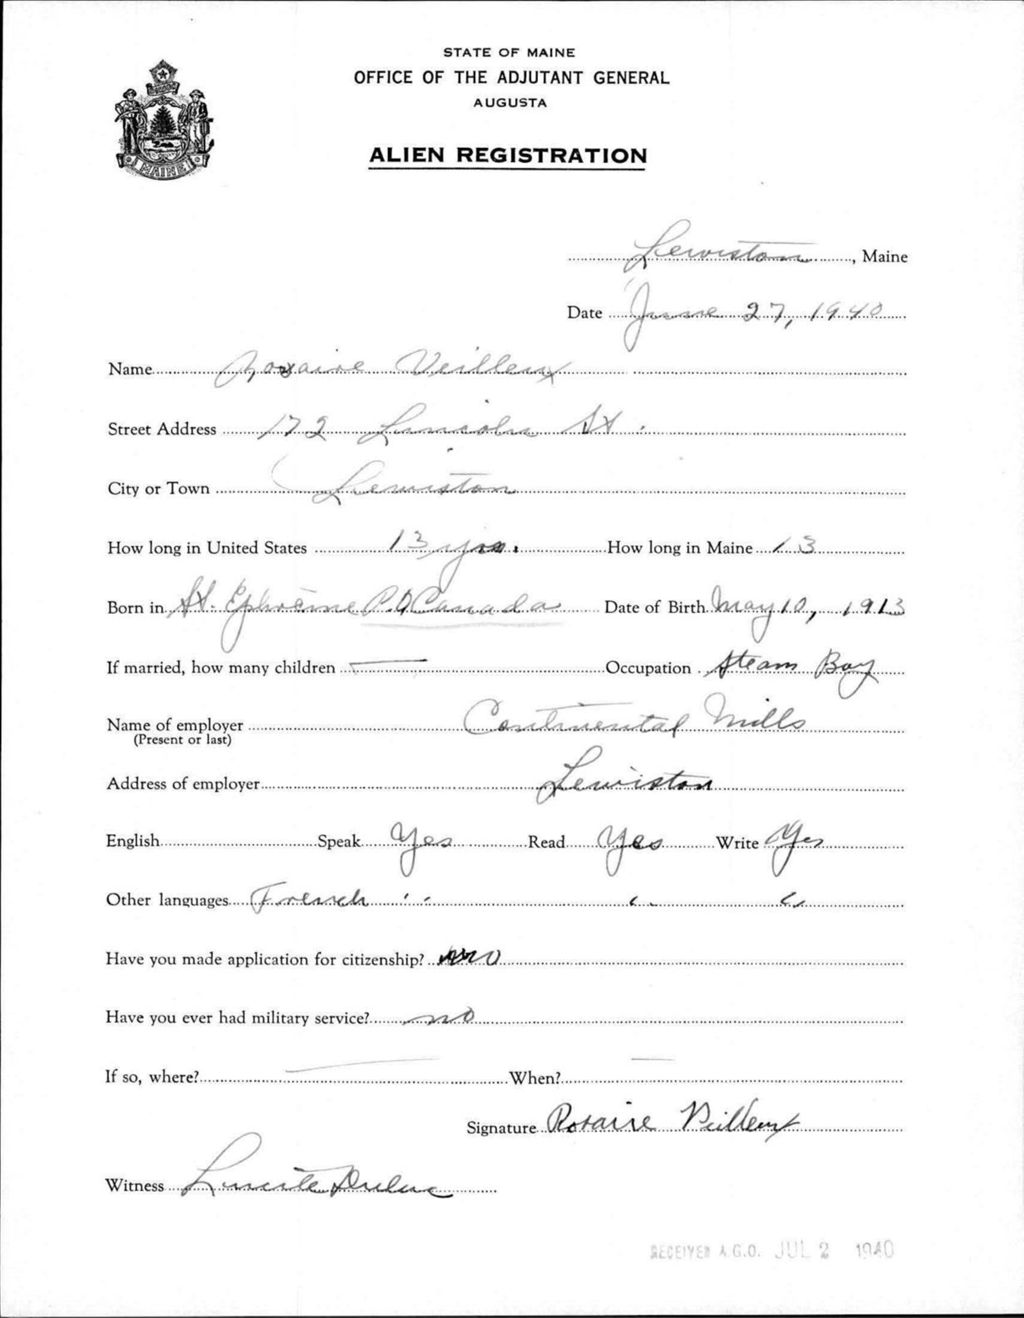 STATE OF MAINE
OFFICE OF THE ADJUTANT GENERAL
AUGUSTA
ALIEN REGISTRATION
MAINE
Lewiston, Maine
Date June 27, 1940
Name Rosaire Veilleux
Street Address 172 Lincoln St.
City or Town Lewiston
How long in United States 13 yrs. How long in Maine 13
Born in St. Ephrème P.Q Canada Date of Birth May 10, 1913
If married, how many children — Occupation Steam Boy
Name of employer Continental Mills
(Present or last)
Address of employer Lewiston
English Speak Yes Read Yes Write Yes
Other languages French " " "
Have you made application for citizenship? no
Have you ever had military service? no
If so, where? — When? —
Signature Rosaire Veilleux
Witness Lucille
RECEIVED A.G.O. JUL 2 1940